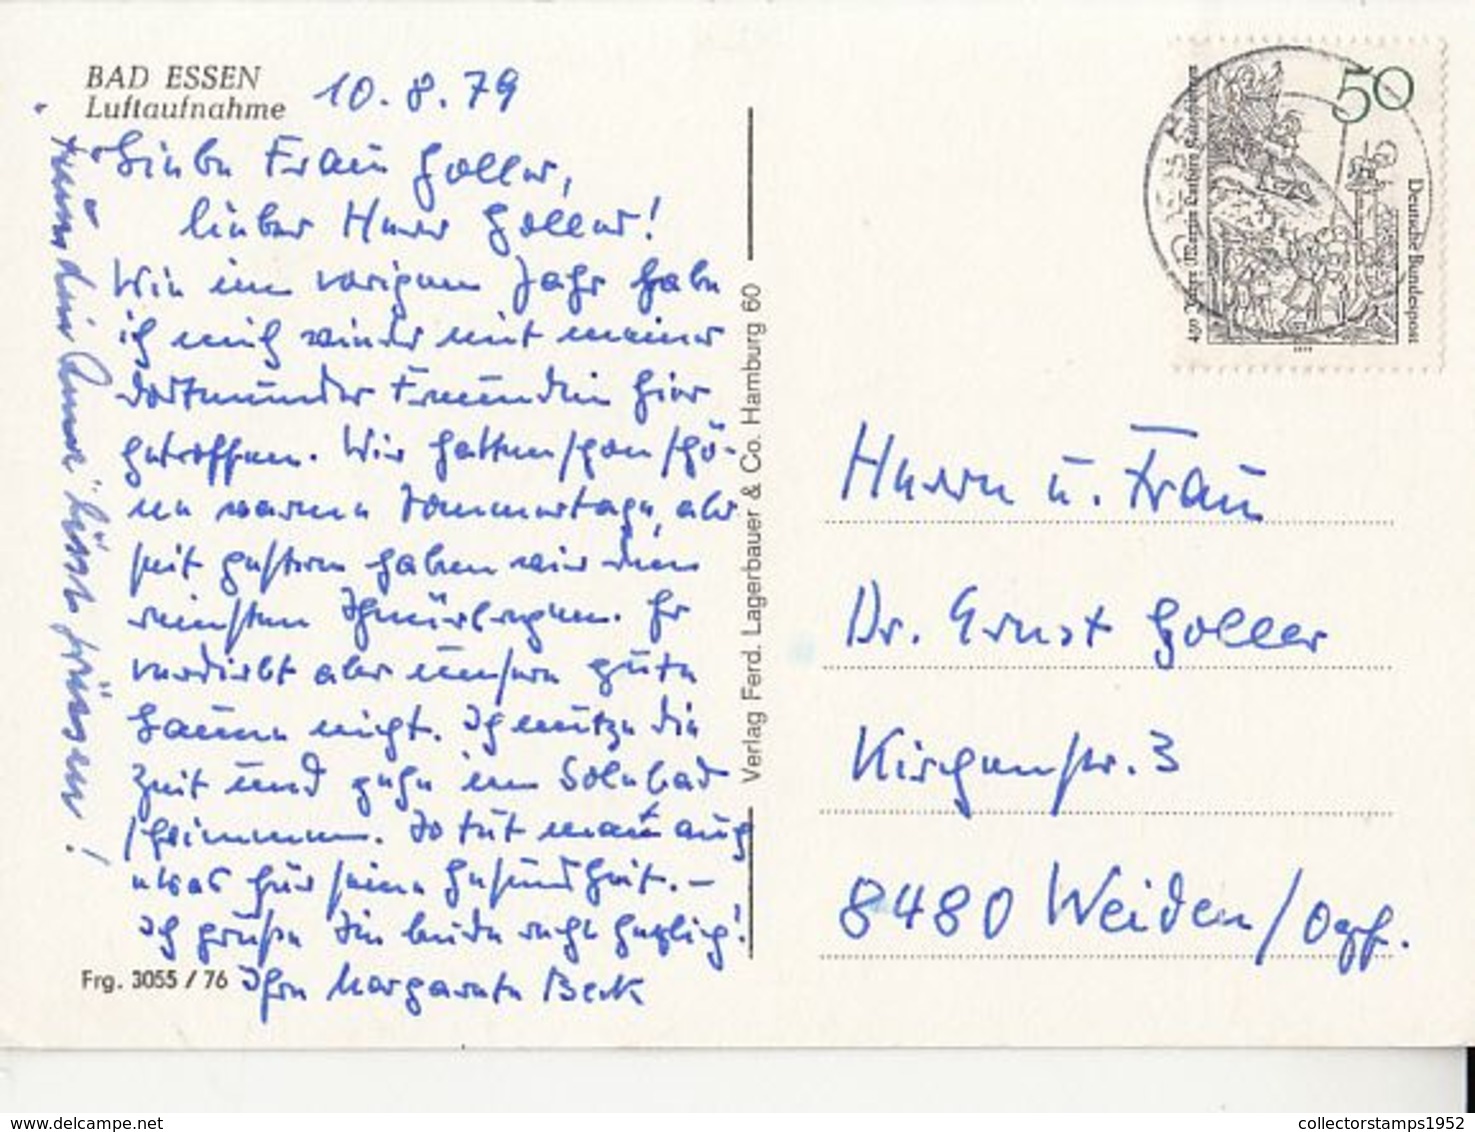 BAD ESSEN
Luftaufnahme
10.8.79
Liebe Frau Goller,
lieber Herr Goller!
Wie im vorigen Jahr habe
ich mich wieder mit meiner
Dortmunder Freundin hier
getroffen. Wir hatten schon schö-
ne warme Sommertage, aber
seit gestern haben wir den
reinsten Schnürlregen. Er
verdirbt aber unsere gute
Laune nicht. Ich nütze die
Zeit und gehe im Solebad
schwimmen. So tut man auch
etwas für seine Gesundheit. –
Ich grüße Sie beide recht herzlich!
Ihre Margarete Beck
Freundin lässt grüssen!
Frg. 3055 / 76
Verlag Ferd. Lagerbauer & Co. Hamburg 60
50
Deutsche Bundespost
450 Jahre Martin Luthers Katechismen
1979
Herrn u. Frau
Dr. Ernst Goller
Kirchenstr. 3
8480 Weiden/Opf.
delcampe.net
collectorstamps1952